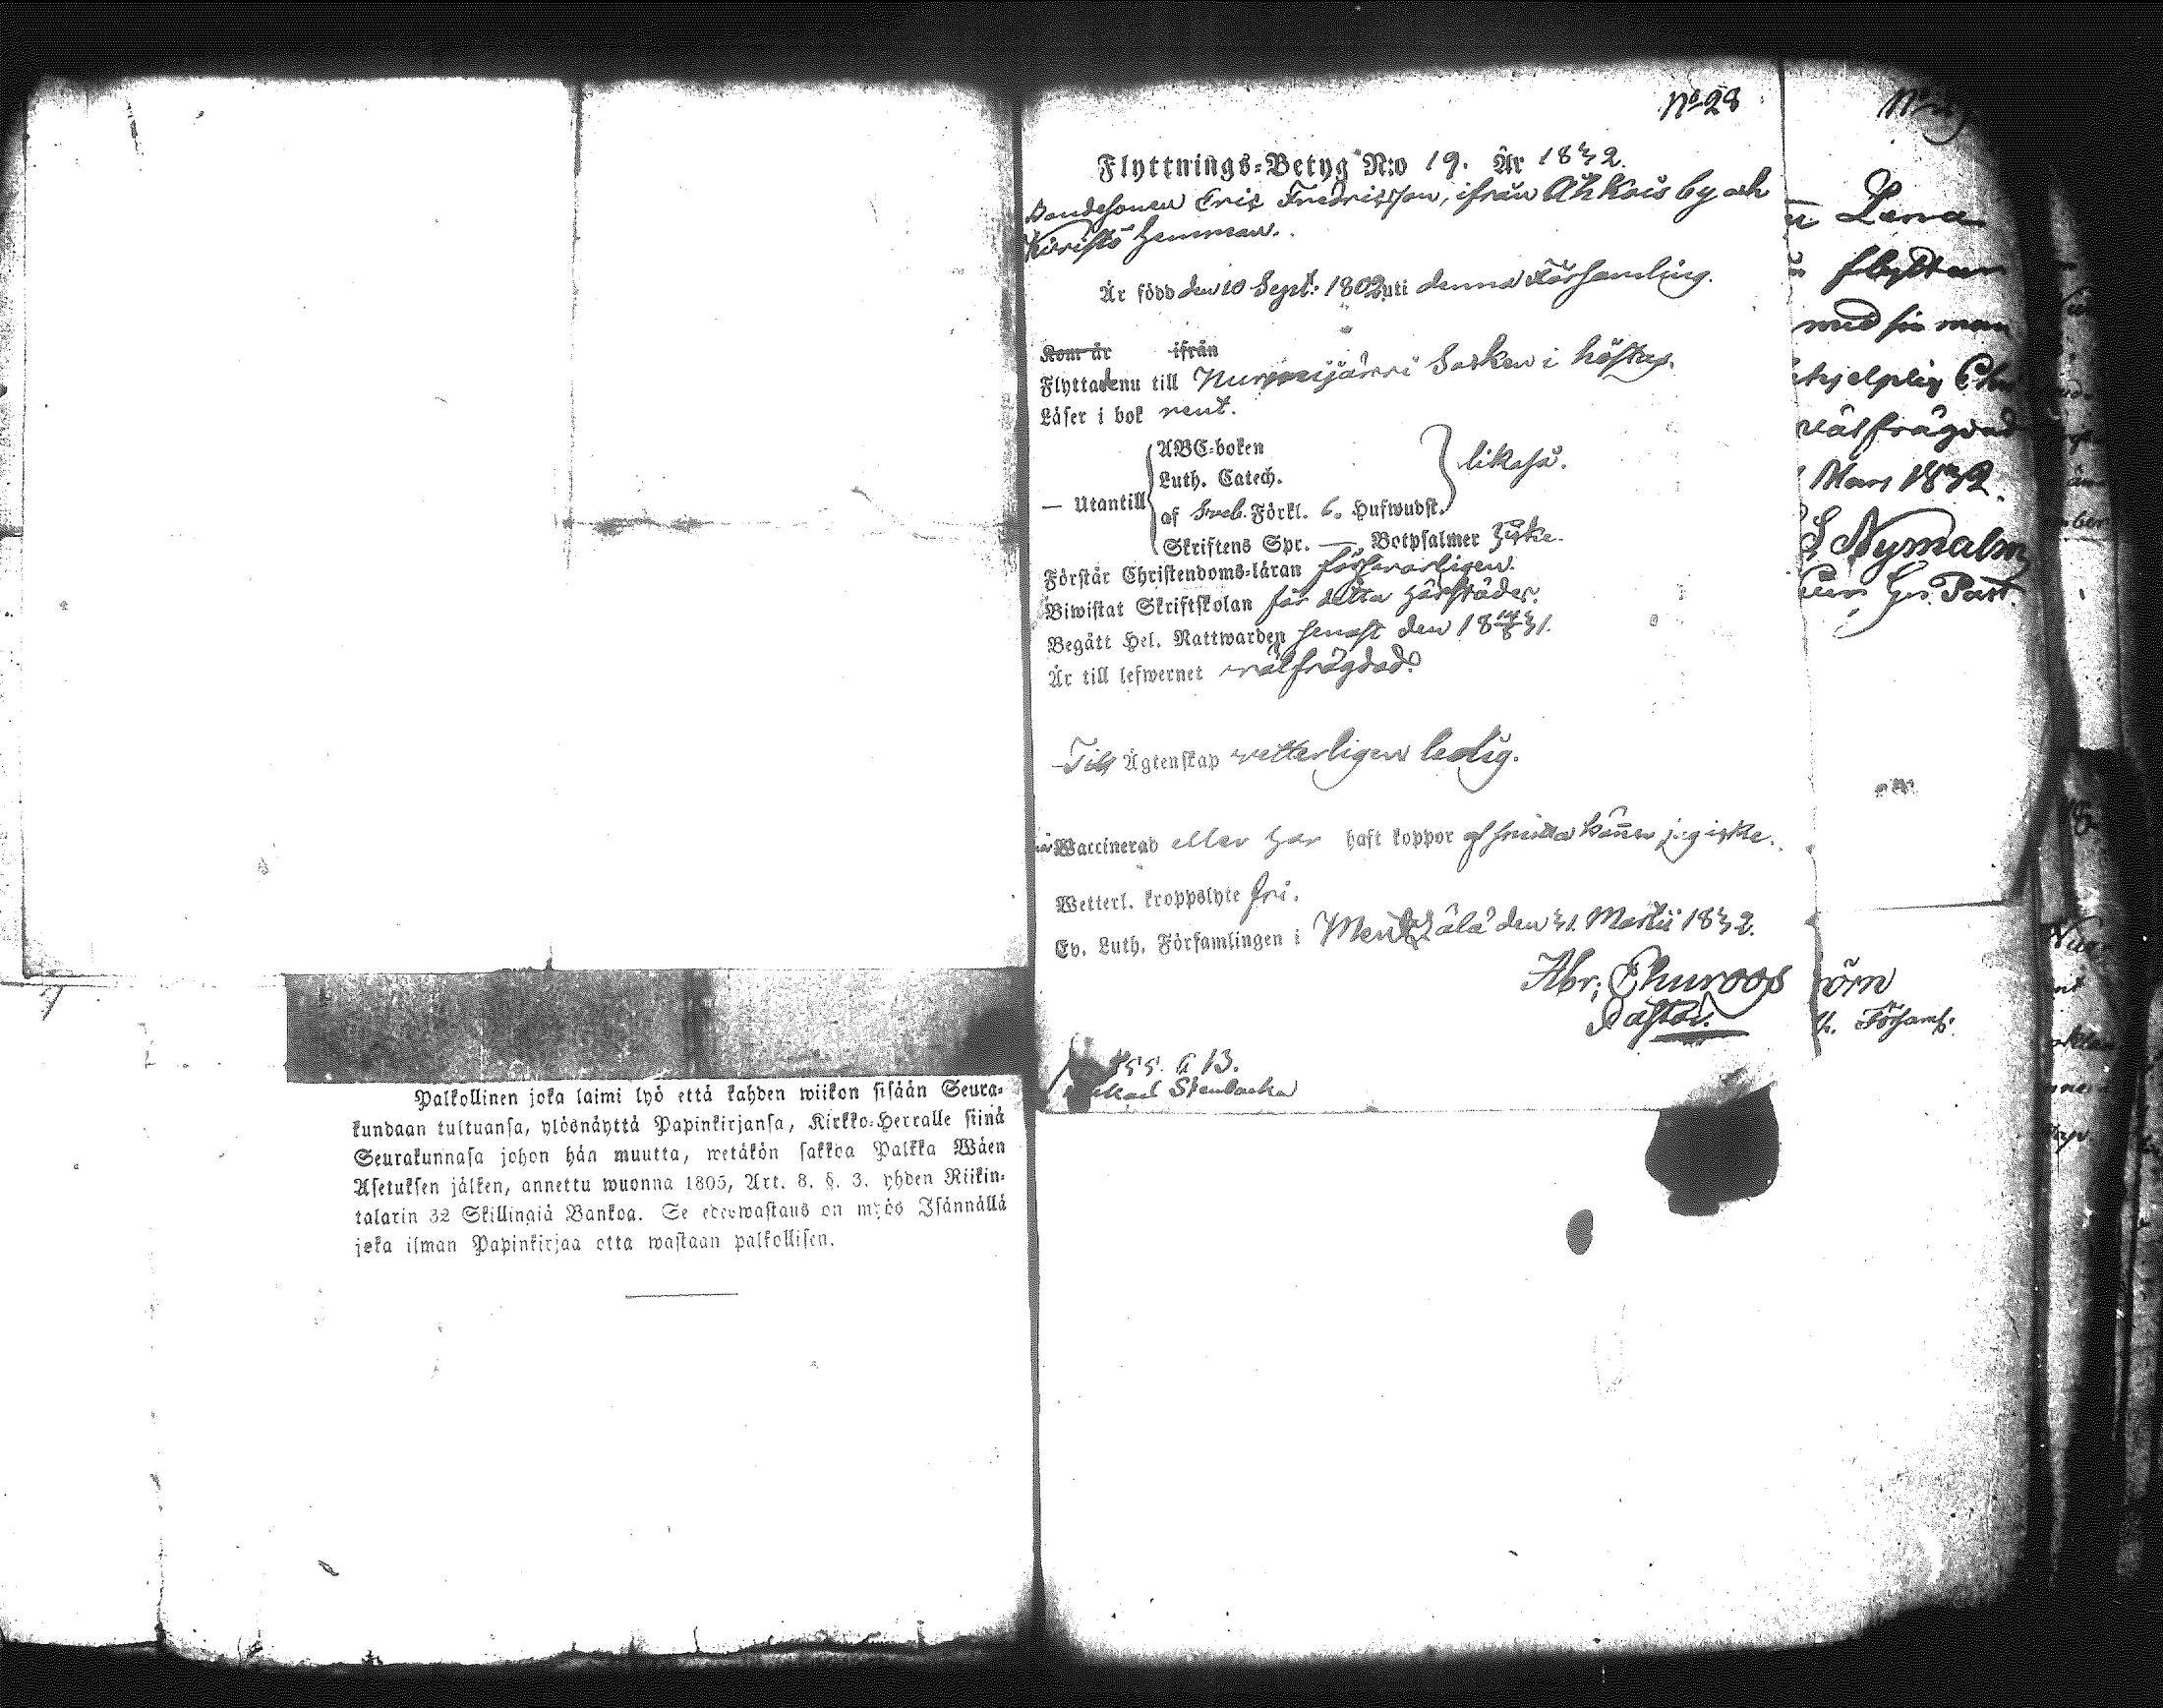 Palkollinen joka laimi lyö että kahden wiikon sisään Seura-
kundaan tultuansa, ylösnäyttä Papinkirjansa, Kirkko-Herralle siinä
Seurakunnasa johon hän muutta, wetäkön sakkoa Palkka Wäen
Asetuksen jälken, annettu wuonna 1805, Art. 8. §. 3. yhden Riikin-
talarin 32 Skillingiä Bankoa. Se edeswastaus on myös Isännällä
joka ilman Papinkirjaa otta wastaan palkollisen.
No 28
Flyttnings-Betyg N:o 19. År 1832.
Bondesonen Eric Fredricsson, ifrån Ahkois by och
hemman.
Är född den 10 Sept: 1802 uti denna Församling.
Kom år ifrån
Flyttade nu till Nurmijärvi Socken i höstas.
Läser i bok rent.
— Utantill
ABC-boken
Luth. Catech.
af Sveb. Förkl. 6. Hufwudst.
likaså.
Skriftens Spr. — Botpsalmer icke.
Förstår Christendoms-läran försvarligen.
Biwistat Skriftskolan för detta härstädes.
Begått Hel. Nattwarden senast den 18 31.
Är till lefwernet välfrägdad.
Till Ägtenskap vetterligen ledig.
Waccinerad eller har haft koppor känner jag icke.
Wetterl. kroppslyte fri.
Ev. Luth. Församlingen i Mentzälä den 31. Martii 1832.
Abr: Ehuroos
Pastor.
155. a 13.
Stenbacka
Lena
flyttar
med sin man
välfrägdad
Mars 1832.
Nymalm
Past.
örn
Församl.